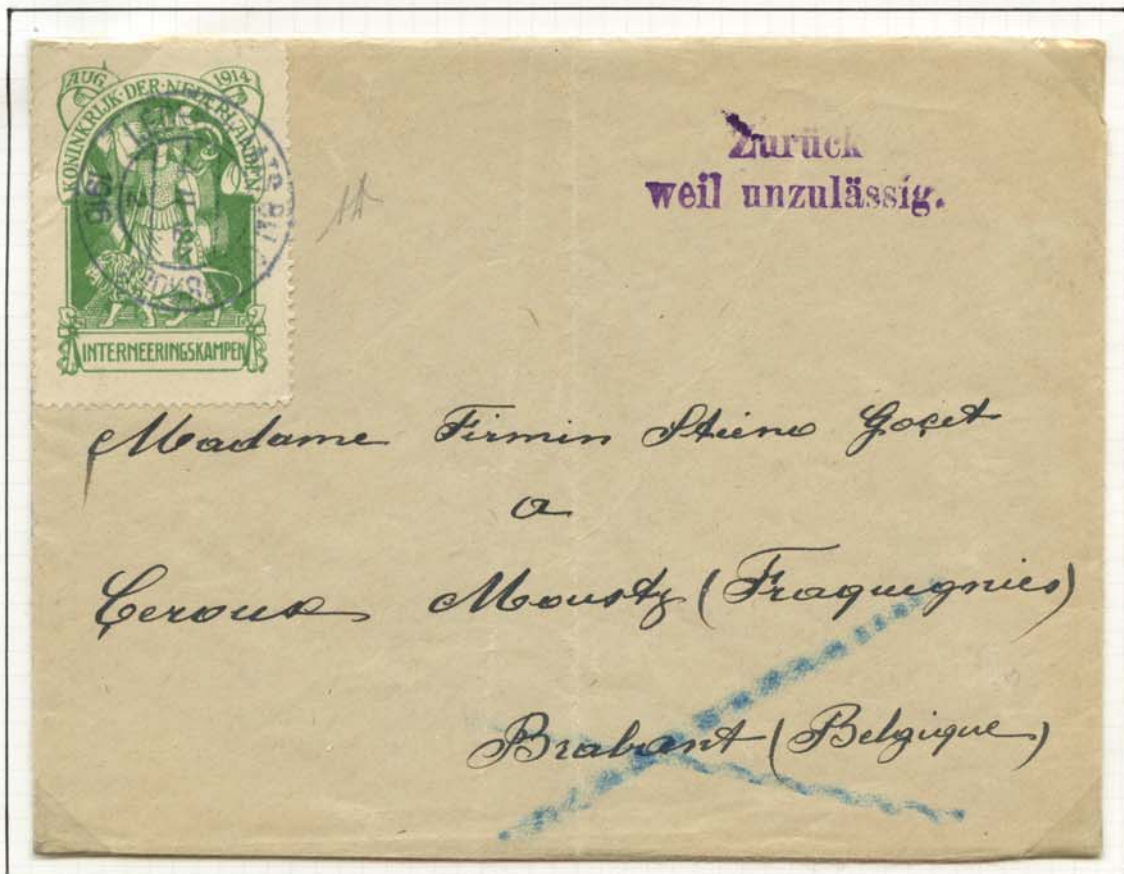 AUG. 1914
KONINKRIJK·DER·NEDERLANDEN
1916
INTERNEERINGSKAMPEN
Zurück
weil unzulässig.
Madame Firmin Stiéno Goçet
a
Ceroux Mousty (Fraquegnies)
Brabant (Belgique)